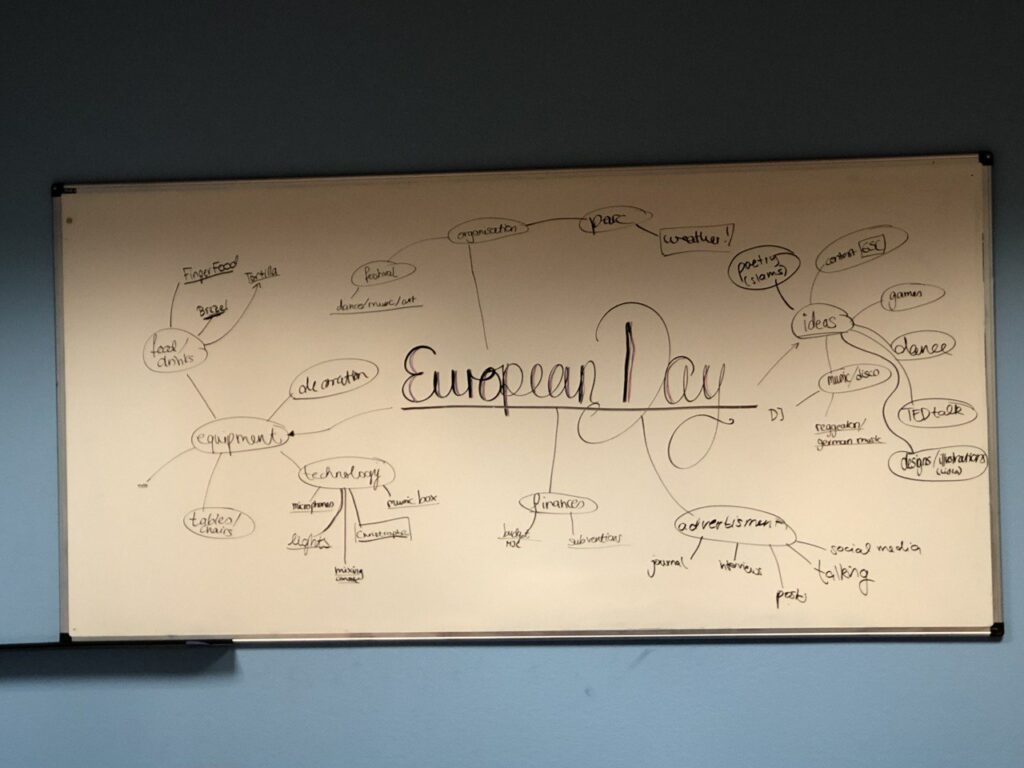 European Day
organisation
parc
weather!
festival
dance/music/art
Finger Food
Tortilla
Brezel
food/
drinks
decoration
equipment
technology
microphones
music box
lights
Christophe
mixing
tables/
chairs
finances
budget
MJC
subventions
advertisment
journal
interviews
posts
talking
social media
ideas
poetry
(slams)
contest ESC
games
dance
music/disco
DJ
reggeaton/
german music
TED talk
designs/illustrations